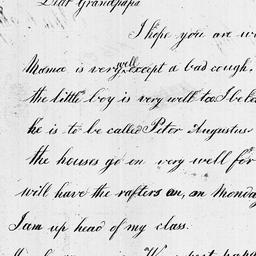 Dear Grandpapa
I hope you are w
Mama is very well except a bad cough.
the little boy is very well too I be
he is to be called Peter Augustus
the houses go on very well for
will have the rafters on, on Monday
I am up head of my class.